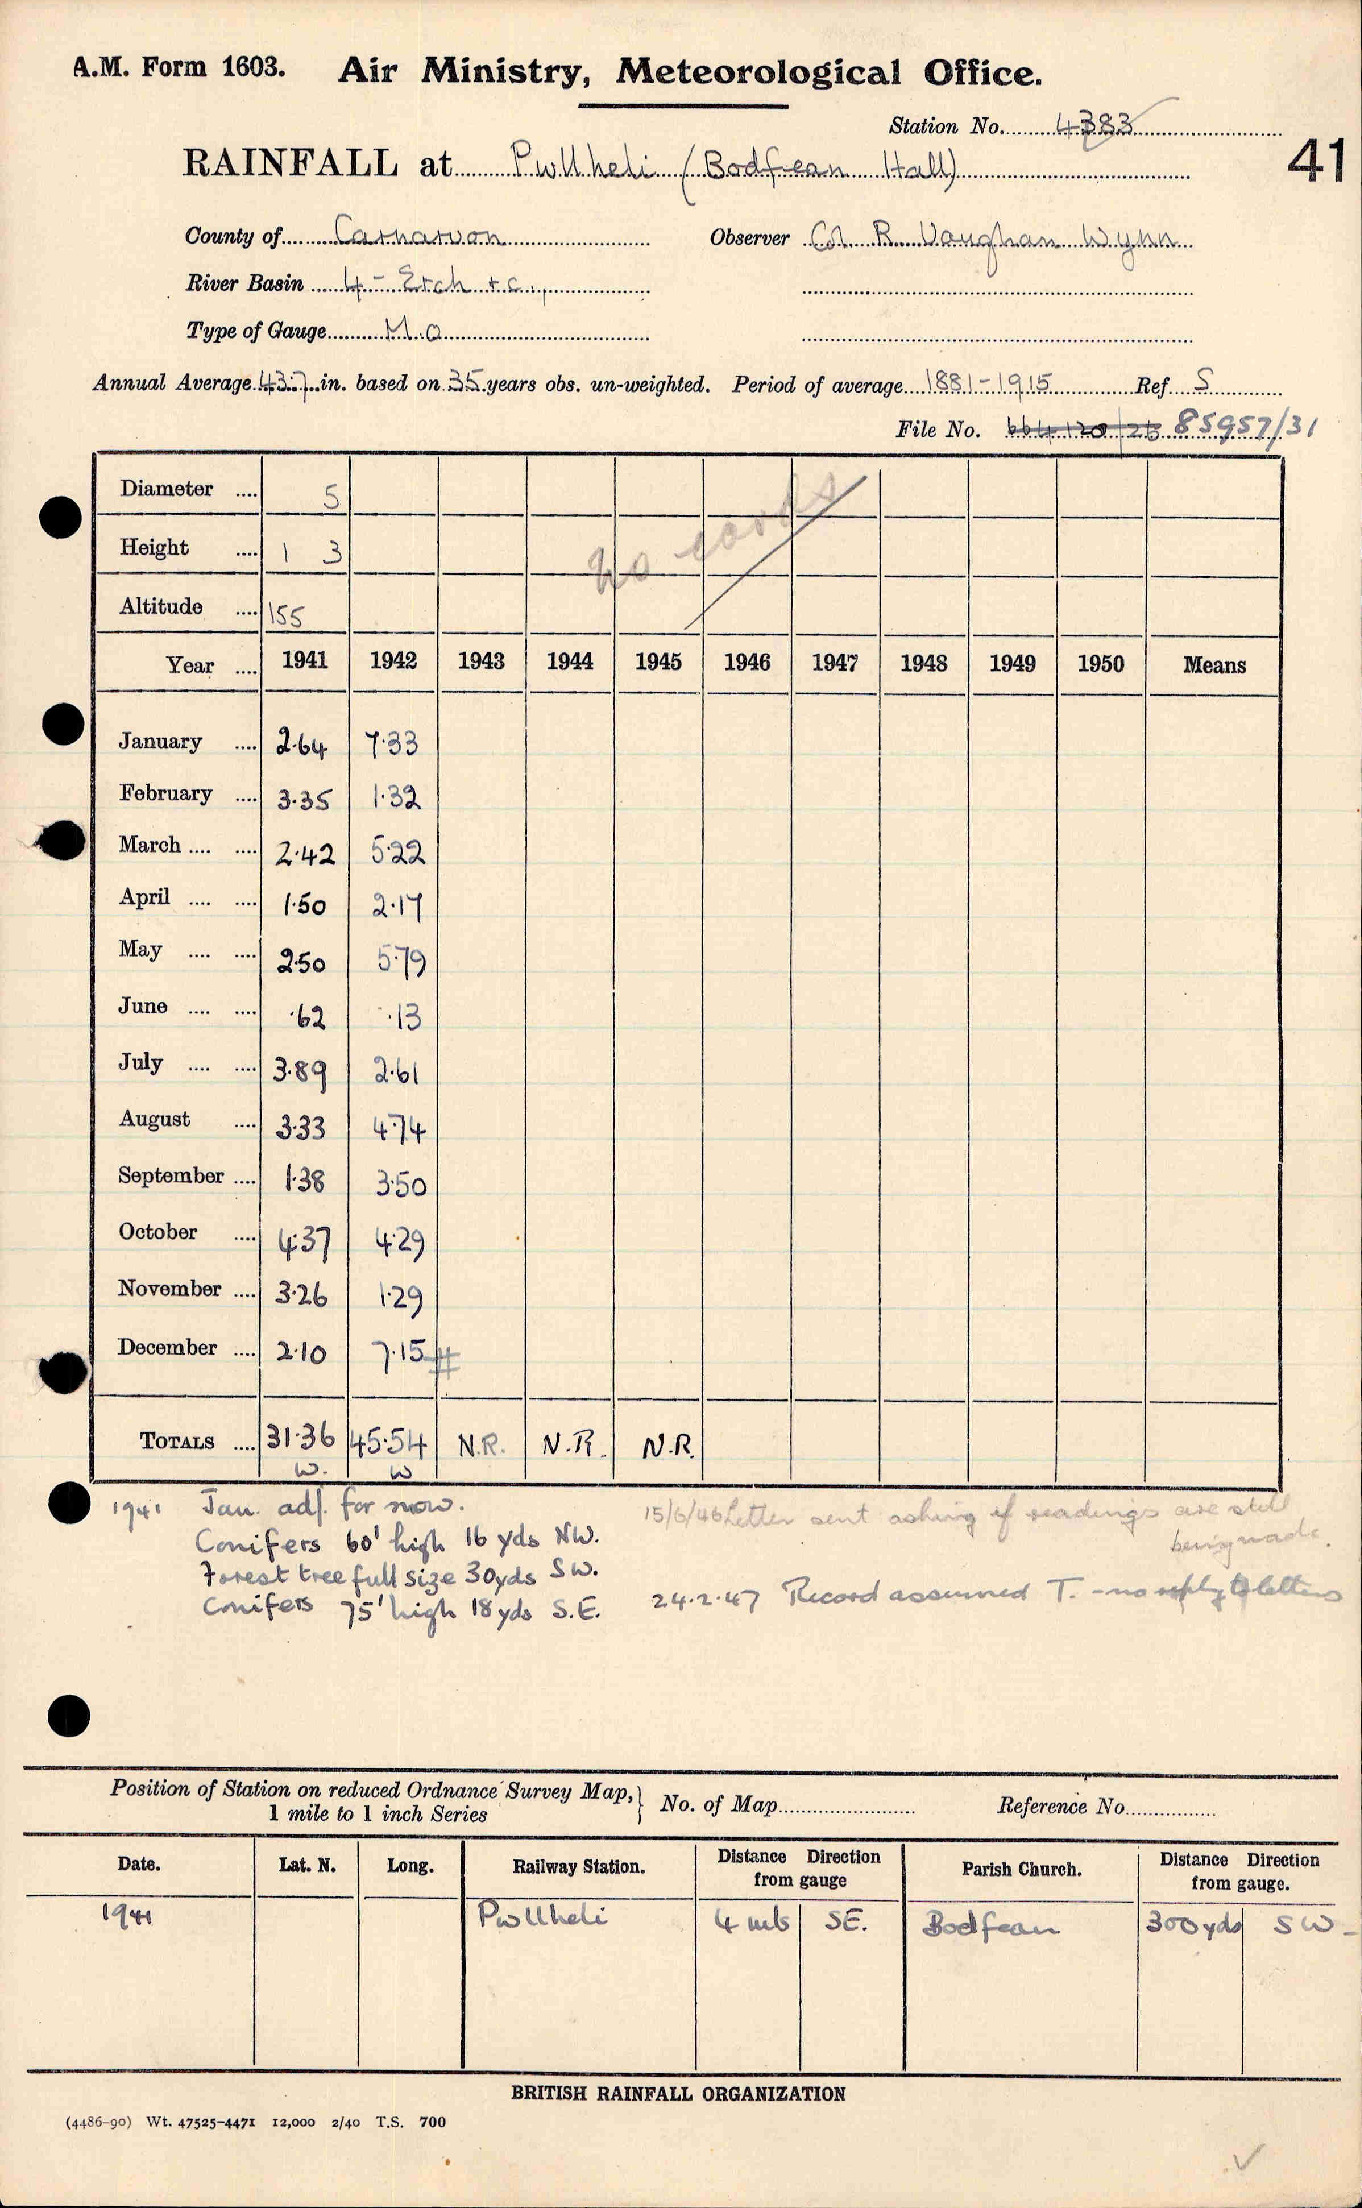 A.M. Form 1603. Air Ministry, Meteorological Office.
Station No. 4383
41
RAINFALL at Pwllheli (Bodfean Hall)
County of Carnarvon Observer Col R. Vaughan Wynn
River Basin 4 - Erch +c.,
Type of Gauge M.O
Annual Average 43.7 in. based on 35 years obs. un-weighted. Period of average 1881-1915 Ref S
File No. 85957/31
Diameter .... 5
No cards
Height .... 1 3
Altitude .... 155
Year .... 1941 1942 1943 1944 1945 1946 1947 1948 1949 1950 Means
January .... 2.64 7.33
February .... 3.35 1.32
March .... .... 2.42 5.22
April .... .... 1.50 2.17
May .... .... 2.50 5.79
June .... .... .62 .13
July .... .... 3.89 2.61
August .... 3.33 4.74
September .... 1.38 3.50
October .... 4.37 4.29
November .... 3.26 1.29
December .... 2.10 7.15 #
TOTALS .... 31.36 45.54 N.R. N.R. N.R.
W. W
1941 Jan. adj. for snow. 15/6/46 Letter sent asking if readings are still
being made.
Conifers 60' high 16 yds NW.
Forest tree full size 30yds SW.
Conifers 75' high 18 yds S.E. 24.2.47 Record assumed T. - no reply to letters
Position of Station on reduced Ordnance Survey Map,} No. of Map Reference No.
1 mile to 1 inch Series
Date. Lat. N. Long. Railway Station. Distance Direction from gauge Parish Church. Distance Direction from gauge.
1941 Pwllheli 4 mls SE. Bodfean 300 yds SW
BRITISH RAINFALL ORGANIZATION
(4486-90) Wt. 47525-4471 12,000 2/40 T.S. 700